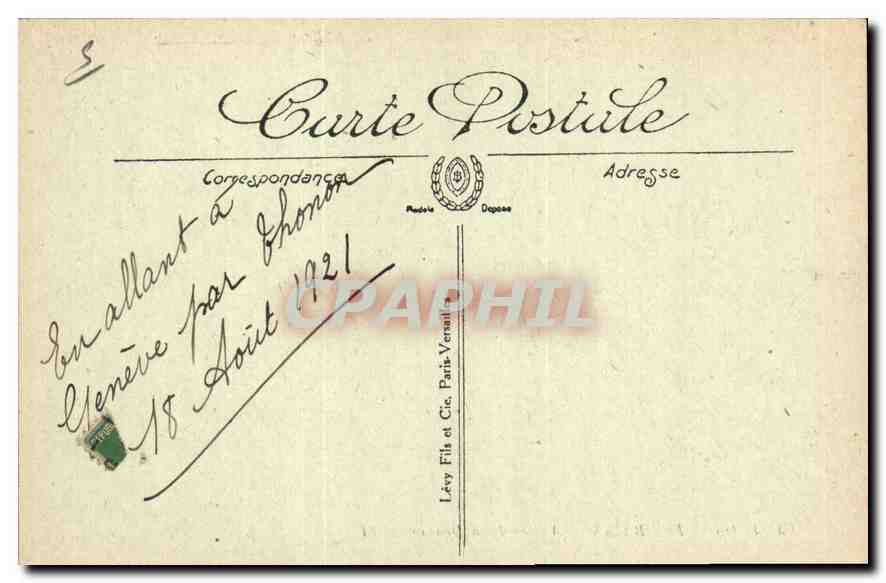 5
Carte Postale
Correspondance
Adresse
Modèle Déposé
En allant à
Genève par Thonon
18 Août 1921
CPAPHIL
Lévy Fils et Cie, Paris-Versailles